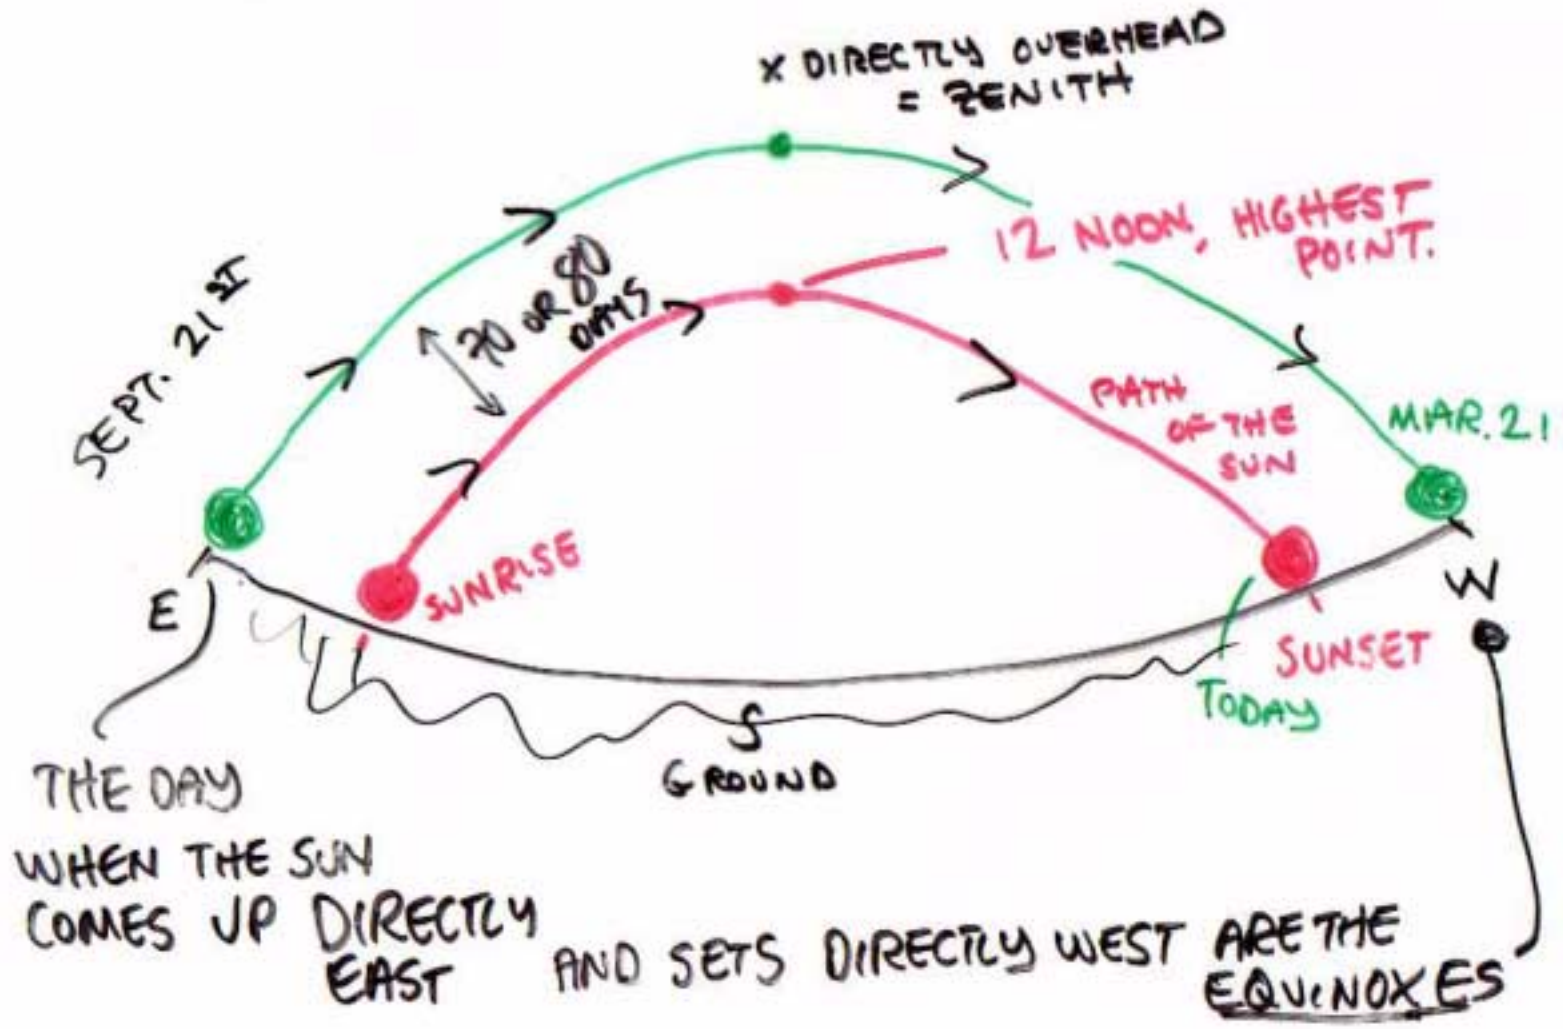 X DIRECTLY OVERHEAD
= ZENITH
12 NOON, HIGHEST
POINT.
SEPT. 21ST
70 OR 80
DAYS
PATH
OF THE
SUN
MAR. 21
SUNRISE
E
W
SUNSET
TODAY
S
GROUND
THE DAY
WHEN THE SUN
COMES UP DIRECTLY
EAST
AND SETS DIRECTLY WEST ARE THE
EQUINOXES